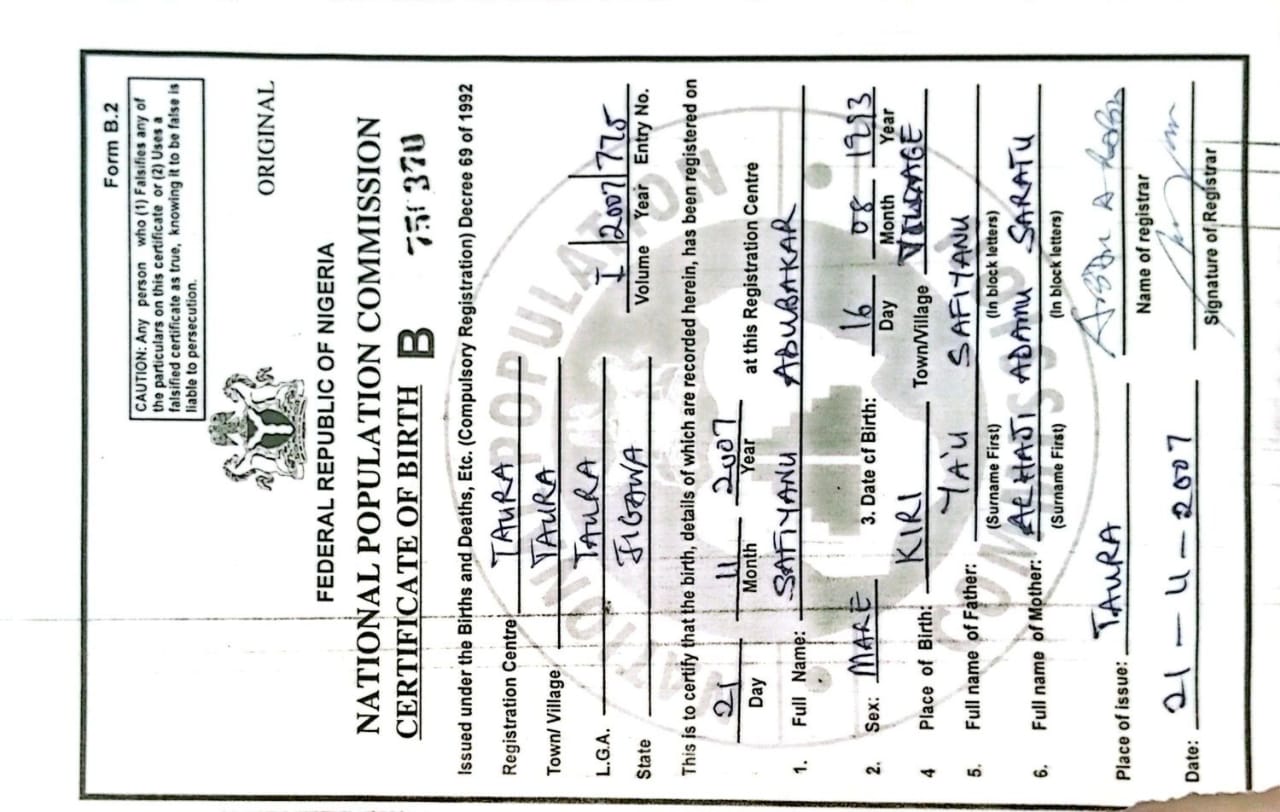 Form B.2
CAUTION: Any person who (1) Falsifies any of
the particulars on this certificate or (2) Uses a
falsified certificate as true, knowing it to be false is
liable to persecution.
ORIGINAL
FEDERAL REPUBLIC OF NIGERIA
NATIONAL POPULATION COMMISSION
CERTIFICATE OF BIRTH B
Issued under the Births and Deaths, Etc. (Compulsory Registration) Decree 69 of 1992
Registration Centre TAURA
Town/ Village TAURA
L.G.A. TAURA I 2007 775
State JIGAWA Volume Year Entry No.
This is to certify that the birth, details of which are recorded herein, has been registered on
21 11 2007 at this Registration Centre
Day Month Year
1. Full Name: SAFIYANU ABUBAKAR
2. Sex: MARE 3. Date of Birth: 16 08 1993
Day Month Year
4 Place of Birth: KIRI Town/Village
5. Full name of Father: YA'U SAFIYANU
(Surname First) (In block letters)
6. Full name of Mother: ALHAJI ADAMU SARATU
(Surname First) (In block letters)
Place of issue: TAURA
Name of registrar
Date: 21-11-2007
Signature of Registrar
NATIONAL POPULATION COMMISSION